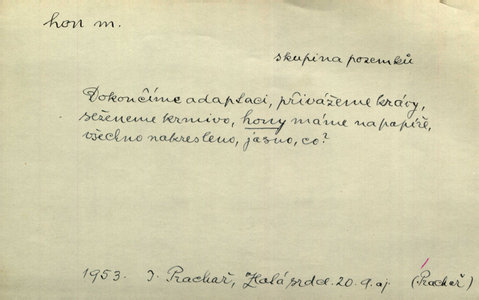 hon m.
skupina pozemků
Dokončíme adaptaci, přivážeme krávy,
seženeme krmivo, hony máme na papíře,
všechno nakresleno, jasno, co?
1953. J. Prachař, Halá srdd. 20. 9. aj (Prachař)